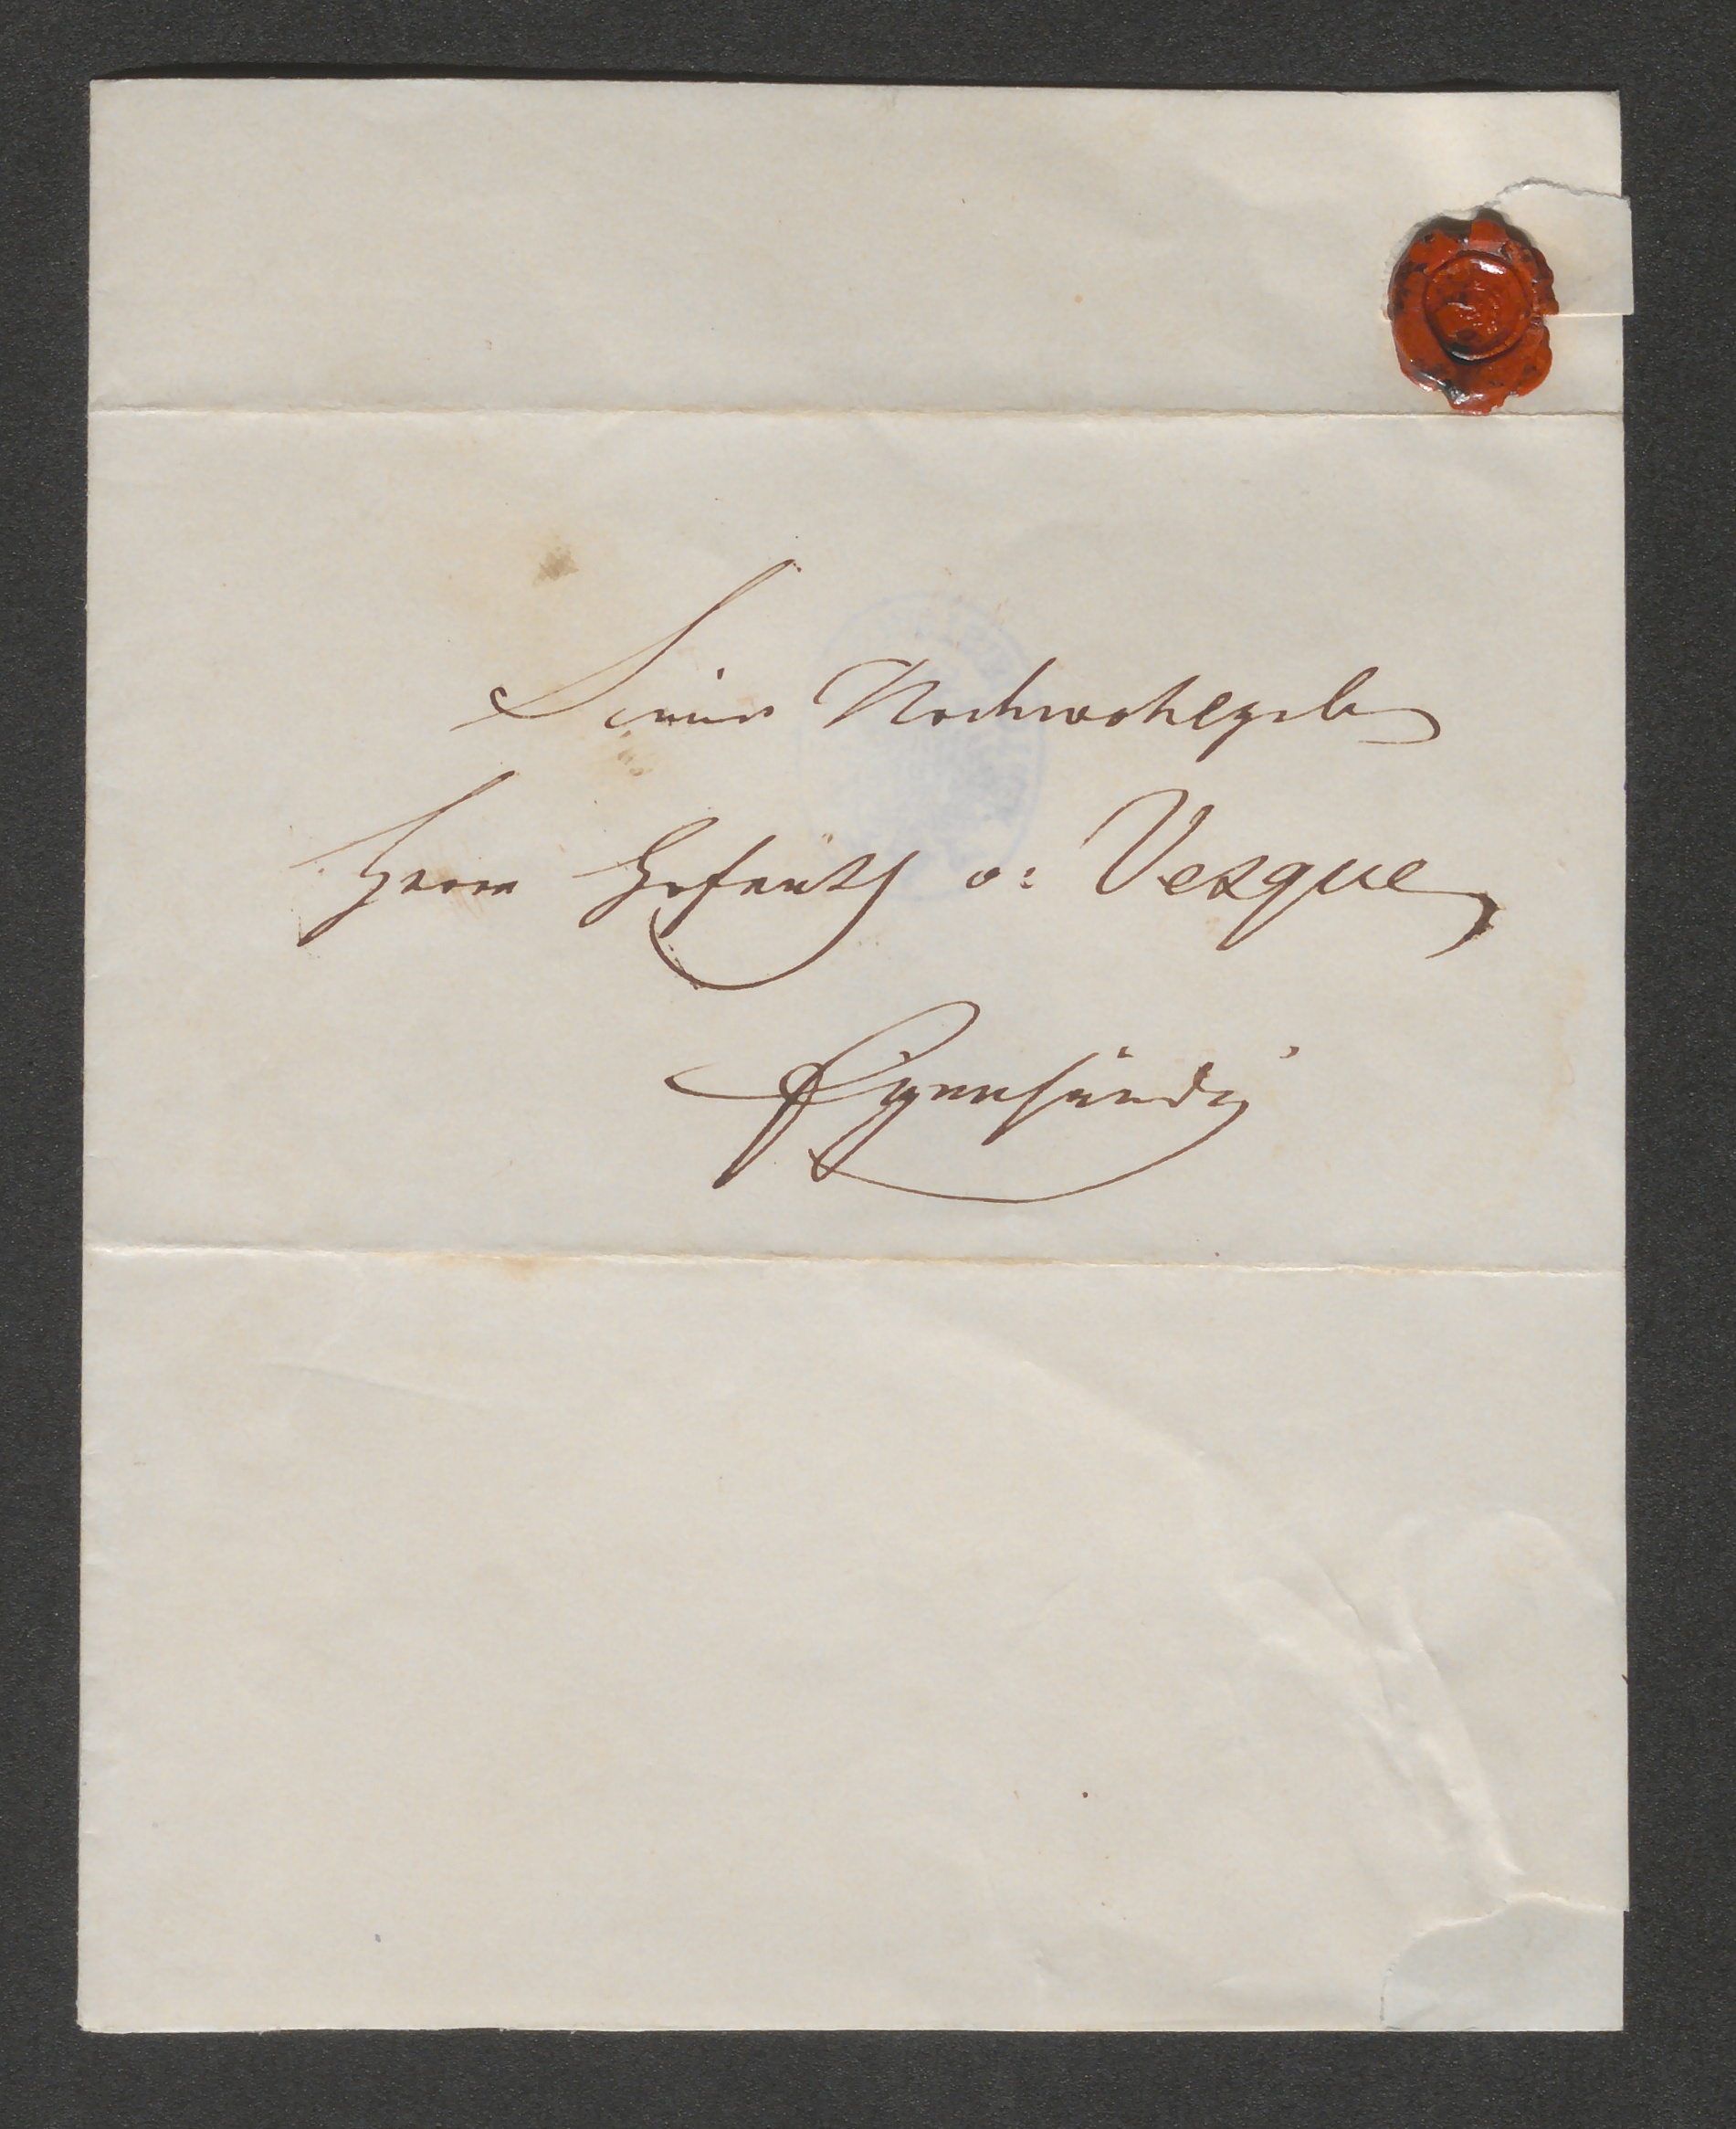 Seiner Hochwohlgeb
Herrn Hofrath v: Vesque
Eigenhändig